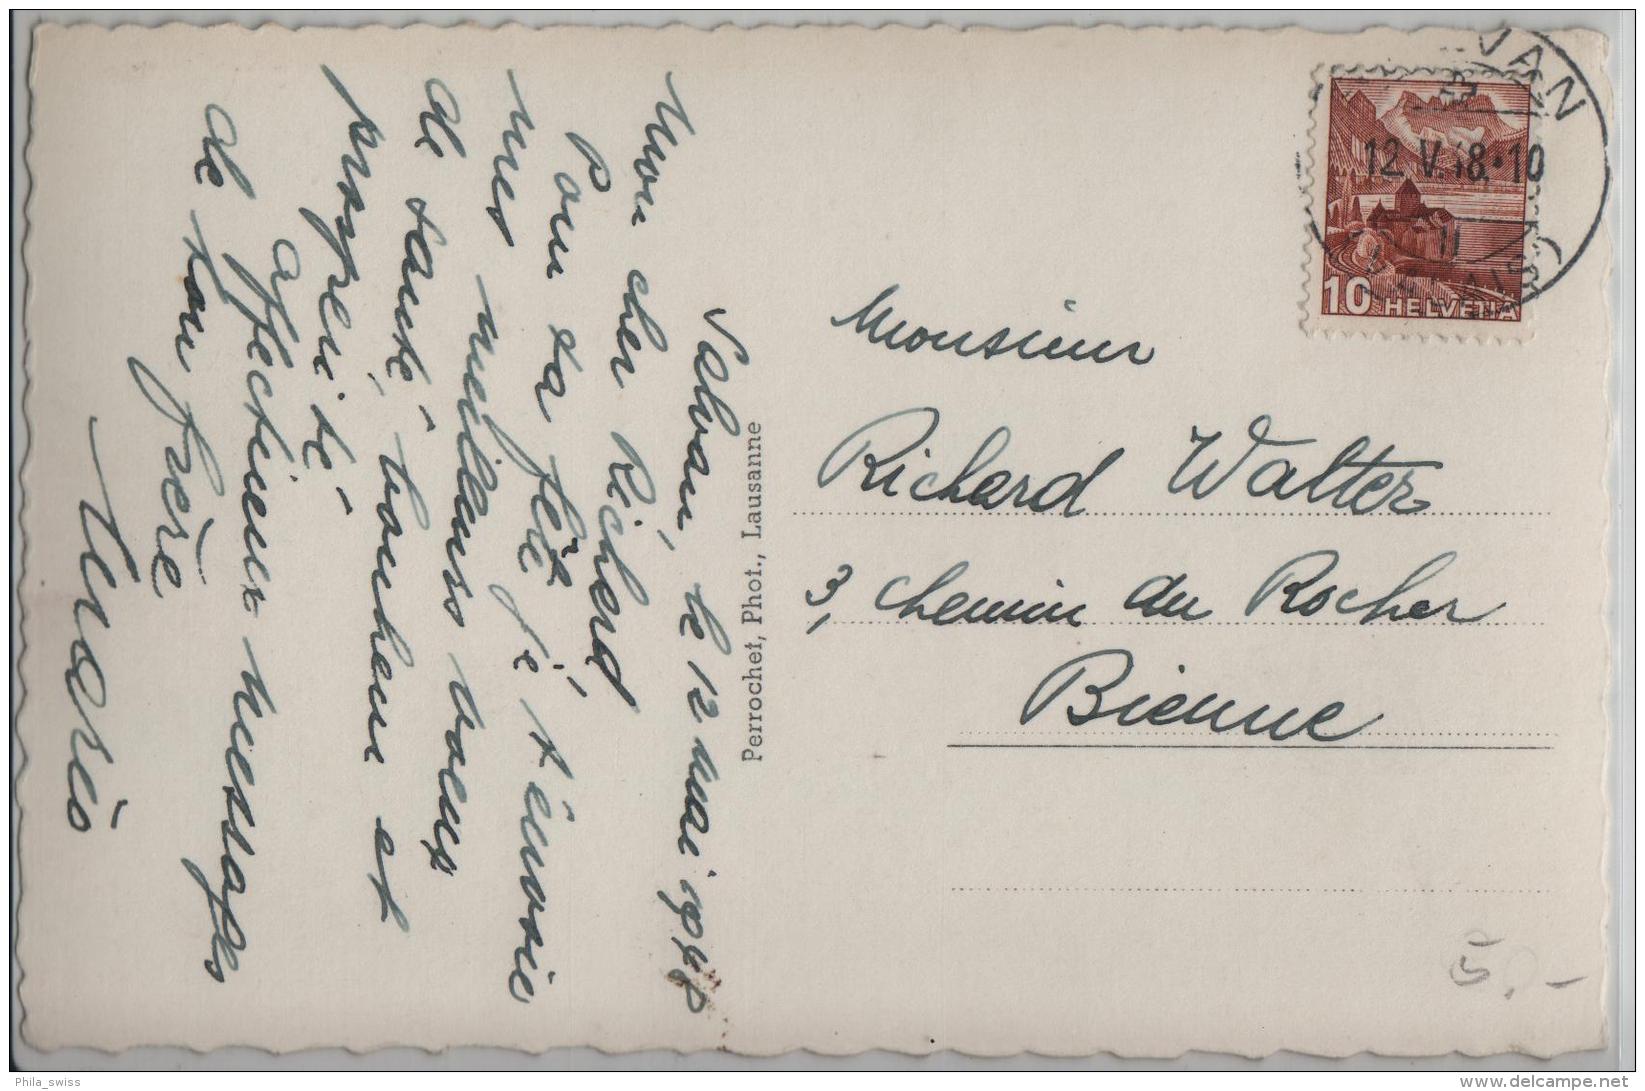 Salvan, le 12 mai 1948
Mon cher Richard
Pour ta fête je t'envoie
mes meilleurs voeux
de santé, bonheur et
prospérité
affectueux messages
de ton frère
Perrochet, Phot., Lausanne
VAN
12.V.48.10
10 HELVETIA
Monsieur
Richard Walter
3, chemin du Rocher
Bienne
5.-
Phila_swiss
www.delcampe.net